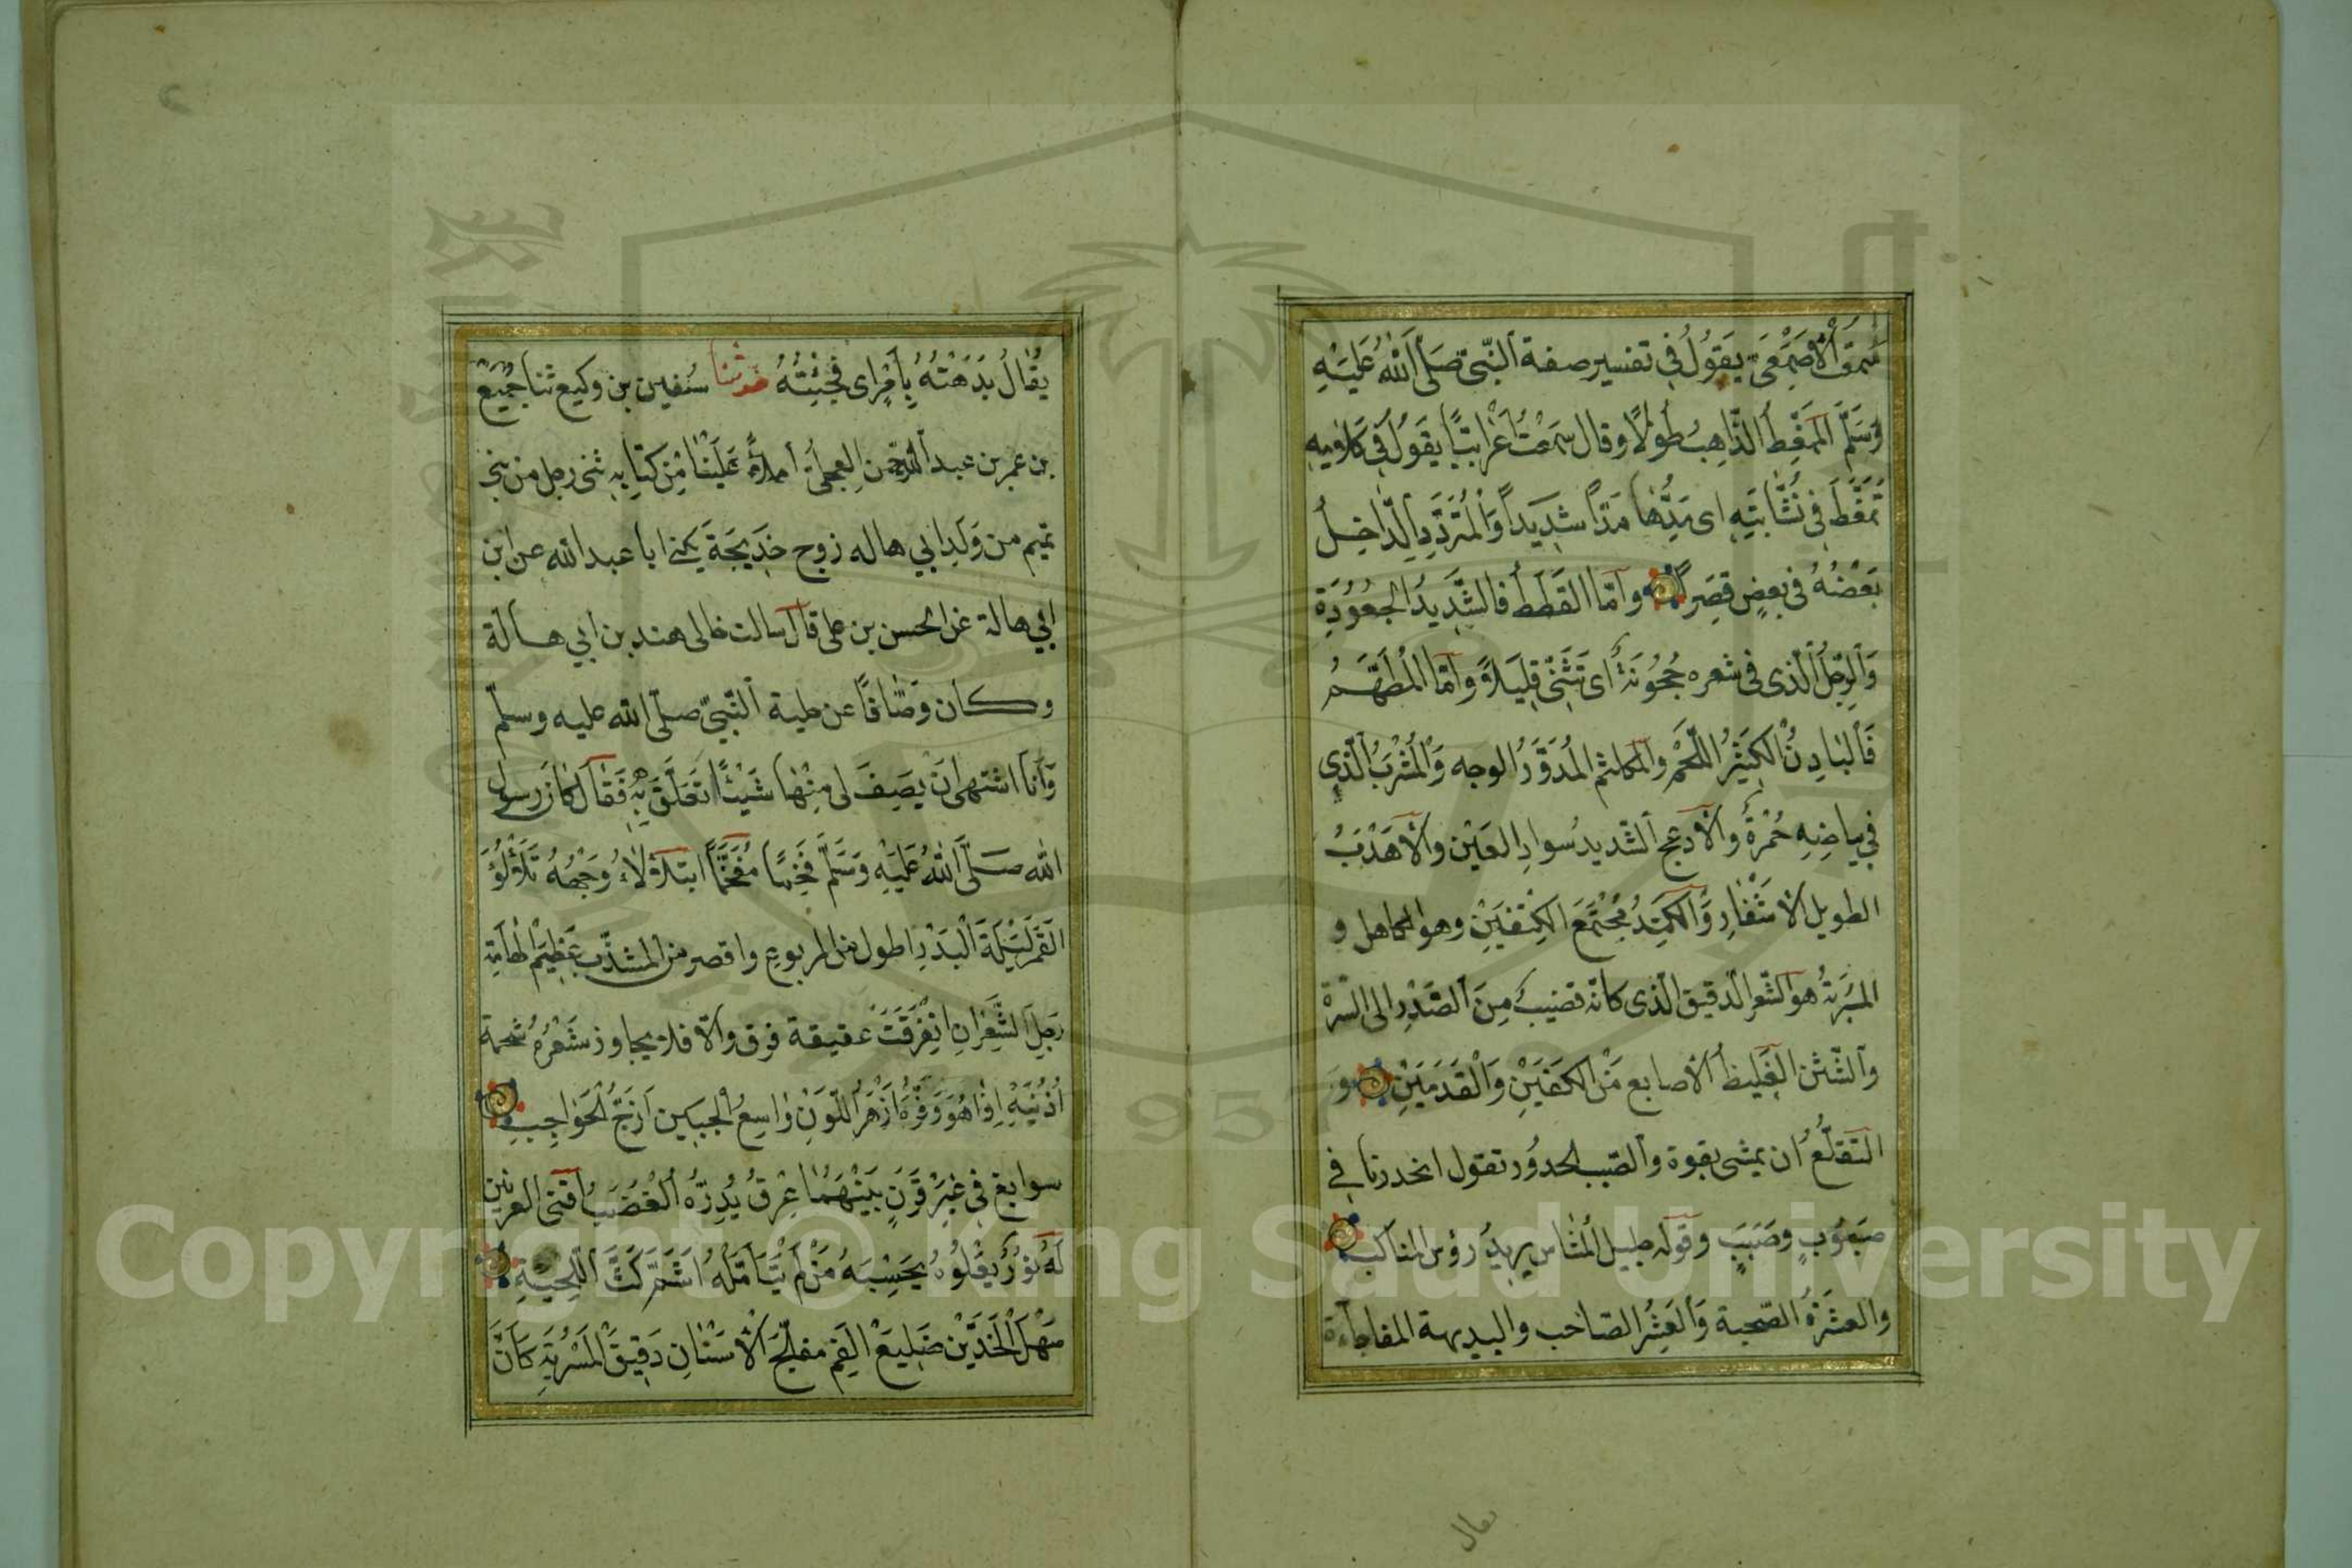 سمعت الأصمعي يقول في تفسير صفة النبي صلى الله عليه
وسلم الممغط الذاهب طولا وقال سمعت اعرابيا يقول في كلامه
تمغط في نشابته اي مدها مدا شديدا والمتردد الداخل
بعضه في بعض قصرا واما القطط فالشديد الجعودة
والرجل الذى فى شعره حجونة اى تثنى قليلا واما المطهم
فالبادن الكثير اللحم والمكلثم المدور الوجه والمشرب الذي
في بياضه حمرة والادعج الشديد سواد العين والاهدب
الطويل الاشفار والكتد مجتمع الكتفين وهو الكاهل و
المسربة هو الشعر الدقيق الذى كانه قضيب من الصدر الى السرة
والشثن الغليظ الاصابع من الكفين والقدمين و
التقلع ان يمشى بقوة والصبب الحدور تقول انحدرنا في
صبوب وصبب وقوله جليل المشاس يريد رؤس المناكب
والعشرة الصحبة والعشير الصاحب والبديهة المفاجاءة
يقال
يقال بدهته بامر اى فجئته حدثنا سفين بن وكيع ثنا جميع
بن عمر بن عبد الرحمن العجلى املاء علينا من كتابه ثنى رجل من بنى
تميم من ولد ابي هاله زوج خديجة يكنى ابا عبد الله عن ابن
ابي هالة عن الحسن بن على قال سالت خالى هند بن ابي هالة
وكان وصافا عن حلية النبي صلى الله عليه وسلم
وانا اشتهى ان يصف لى منها شيئا اتعلق به فقال كان رسول
الله صلى الله عليه وسلم فخما مفخما يتلألأ وجهه تلألؤ
القمر ليلة البدر اطول من المربوع واقصر من المشذب عظيم الهامة
رجل الشعر ان انفرقت عقيقة فرق والا فلا يجاوز شعره شحمة
اذنيه اذا هو وفره ازهر اللون واسع الجبين ازج الحواجب
سوابغ في غير قرن بينهما عرق يدره الغضب اقنى العرنين
له نور يعلوه يحسبه من لم يتامله اشم كث اللحية
سهل الخدين ضليع الفم مفلج الاسنان دقيق المسربة كان
Copyright © King Saud University